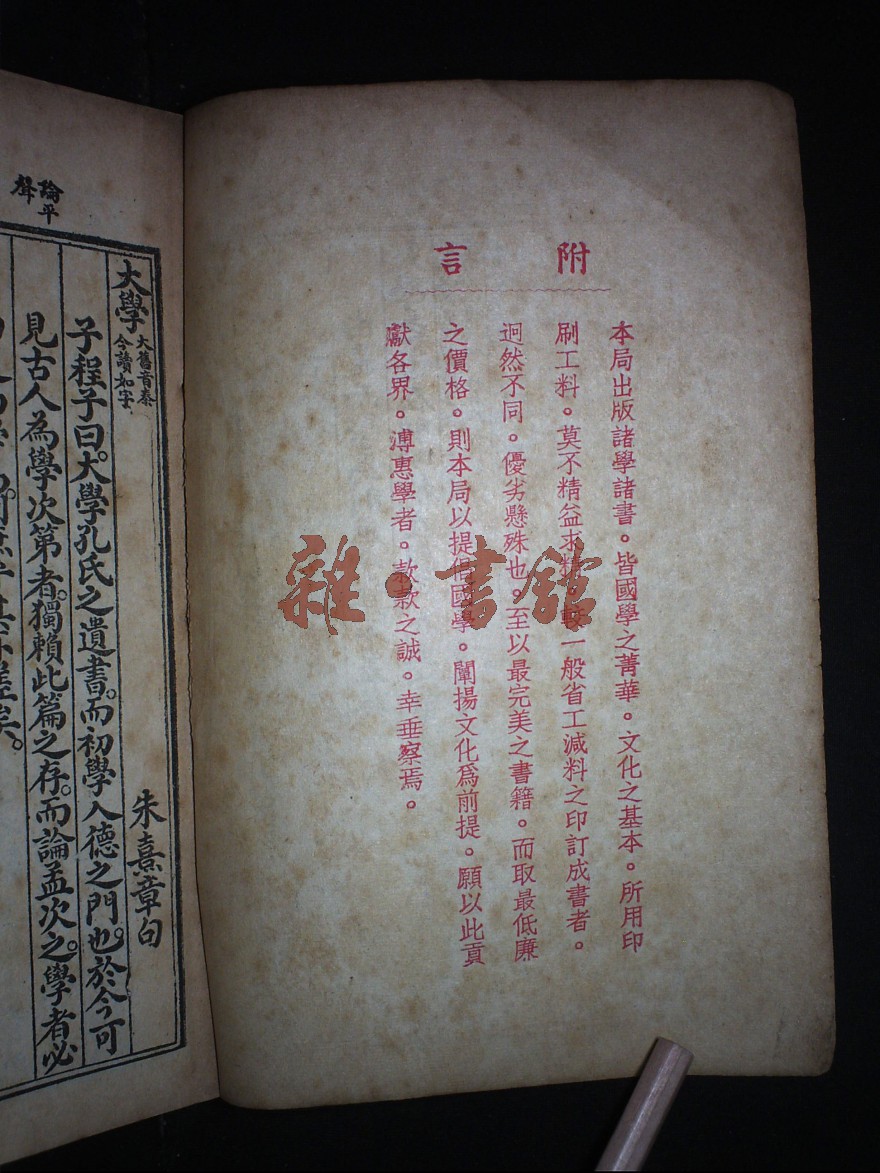 附言
本局出版諸學諸書。皆國學之菁華。文化之基本。所用印
刷工料。莫不精益求精。較一般省工減料之印訂成書者。
迥然不同。優劣懸殊也。至以最完美之書籍。而取最低廉
之價格。則本局以提倡國學。闡揚文化爲前提。願以此貢
獻各界。溥惠學者。款款之誠。幸垂察焉。
雜·書館
論平
聲
大學 大舊音泰
今讀如字
朱熹章句
子程子曰。大學孔氏之遺書。而初學入德之門也。於今可
見古人為學次第者。獨賴此篇之存。而論孟次之。學者必